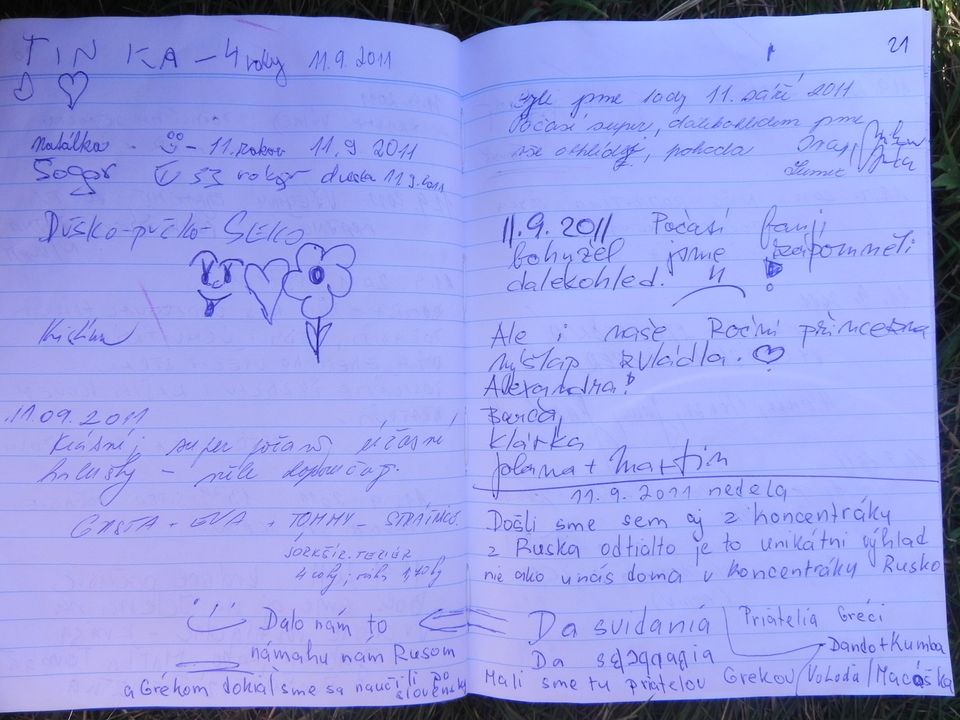 TINKA - 4 roky 11.9.2011
Natálka - 11. rokov 11.9 2011
Sogor 53 rokor dneska 11.9.2011
Duško-pučko- SEKO
Kristína
11.09.2011
Krásný, super počasí, úžasné
halušky -
GUSTA + EVA + TOMMY -
JORKŠÍR. TERIÉR
4 roky;
Dalo nám to
námahu nám Rusom
a Grékom dokial sme sa naučili po
slovensky
21
Byli jsme tady 11. září 2011
Počasí super, dalekohledem jsme
vše ohlédly, pohoda
11.9.2011 Počasí fanji
bohyžel jsme zapomněli
dalekohled.
Ale i naše Roční princezna
výšlap zvládla.
Alexandra!
Barča,
Klárka
Jolana + Martin
11.9.2011 nedela
Došli sme sem aj z koncentráky
z Ruska odtialto je to unikátni výhlad
nie ako unás doma v koncentráky Rusko
Da svidania
Priatelia Gréci
Dando+Kumba
Da
Mali sme tu priatelov Grekov / Voloďa / Macoška